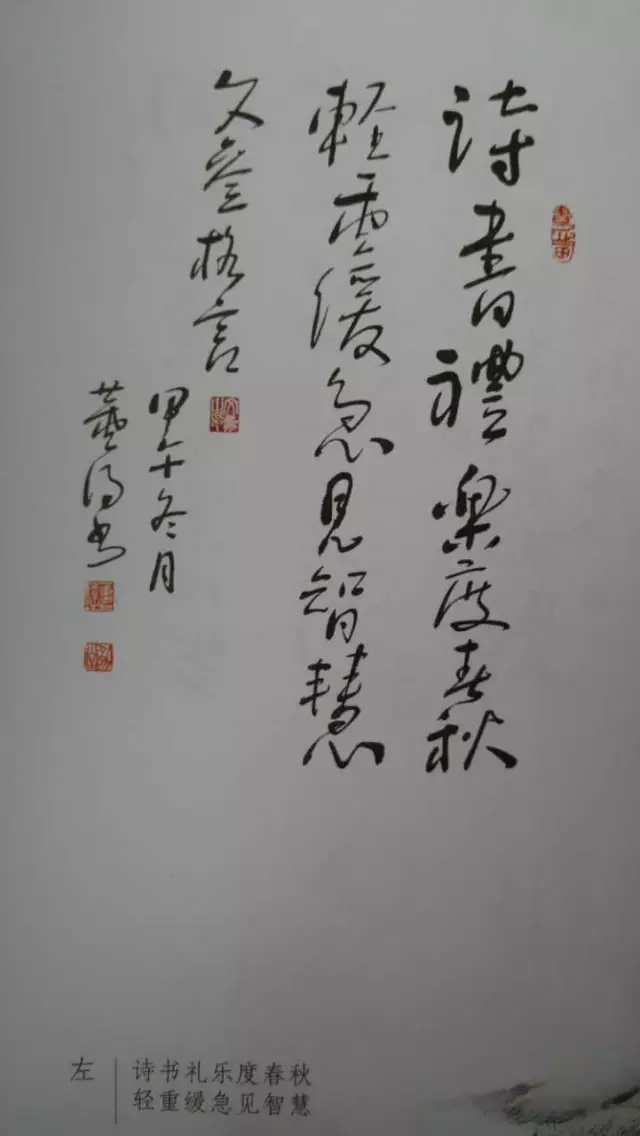 詩書禮樂度春秋
輕重緩急見智慧
文奎格言
甲午冬月
书
左
诗书礼乐度春秋
轻重缓急见智慧